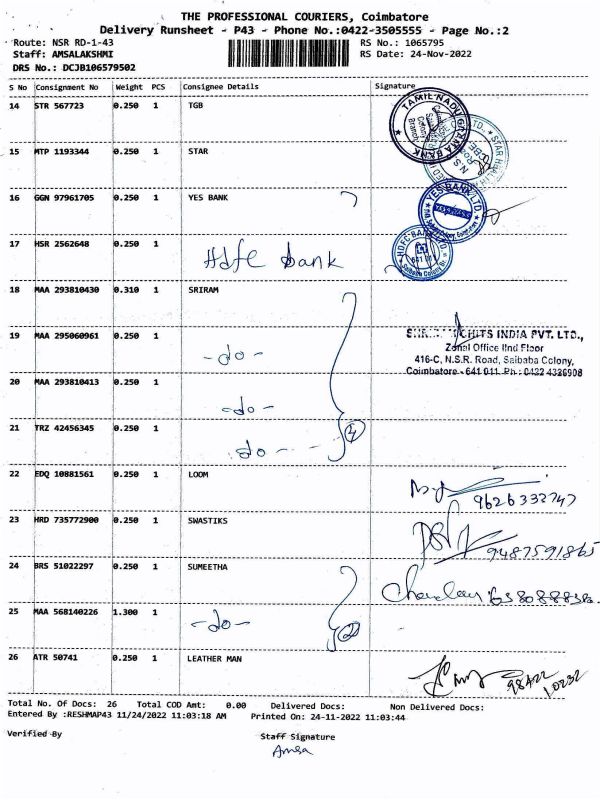 THE PROFESSIONAL COURIERS, Coimbatore
Delivery Runsheet - P43 - Phone No.:0422-3505555 - Page No.:2
Route: NSR RD-1-43 RS No.: 1065795
Staff: AMSALAKSHMI RS Date: 24-Nov-2022
DRS No.: DCJB106579502
S No Consignment No Weight PCS Consignee Details Signature
14 STR 567723 0.250 1 TGB
TAMIL NADU GRAMA BANK
15 MTP 1193344 0.250 1 STAR
STAR HEALTH
16 GGN 97961705 0.250 1 YES BANK
YES BANK LTD.
17 HSR 2562648 0.250 1 Hdfc bank
HDFC BANK LTD.
641 011
Saibaba Colony Br.
18 MAA 293810430 0.310 1 SRIRAM
19 MAA 295060961 0.250 1 -do-
CHITS INDIA PVT. LTD.,
Zonal Office IInd Floor
416-C, N.S.R. Road, Saibaba Colony,
Coimbatore - 641 011. Ph : 0422 4326908
20 MAA 293810413 0.250 1 -do-
21 TRZ 42456345 0.250 1 -do- - 4
22 EDQ 10881561 0.250 1 LOOM
9626332747
23 HRD 735772900 0.250 1 SWASTIKS
9487591865
24 BRS 51022297 0.250 1 SUMEETHA
25 MAA 568140226 1.300 1 -do- 2
26 ATR 50741 0.250 1 LEATHER MAN
98422
10232
Total No. Of Docs: 26 Total COD Amt: 0.00 Delivered Docs: Non Delivered Docs:
Entered By :RESHMAP43 11/24/2022 11:03:18 AM Printed On: 24-11-2022 11:03:44
Verified By Staff Signature
Amsa